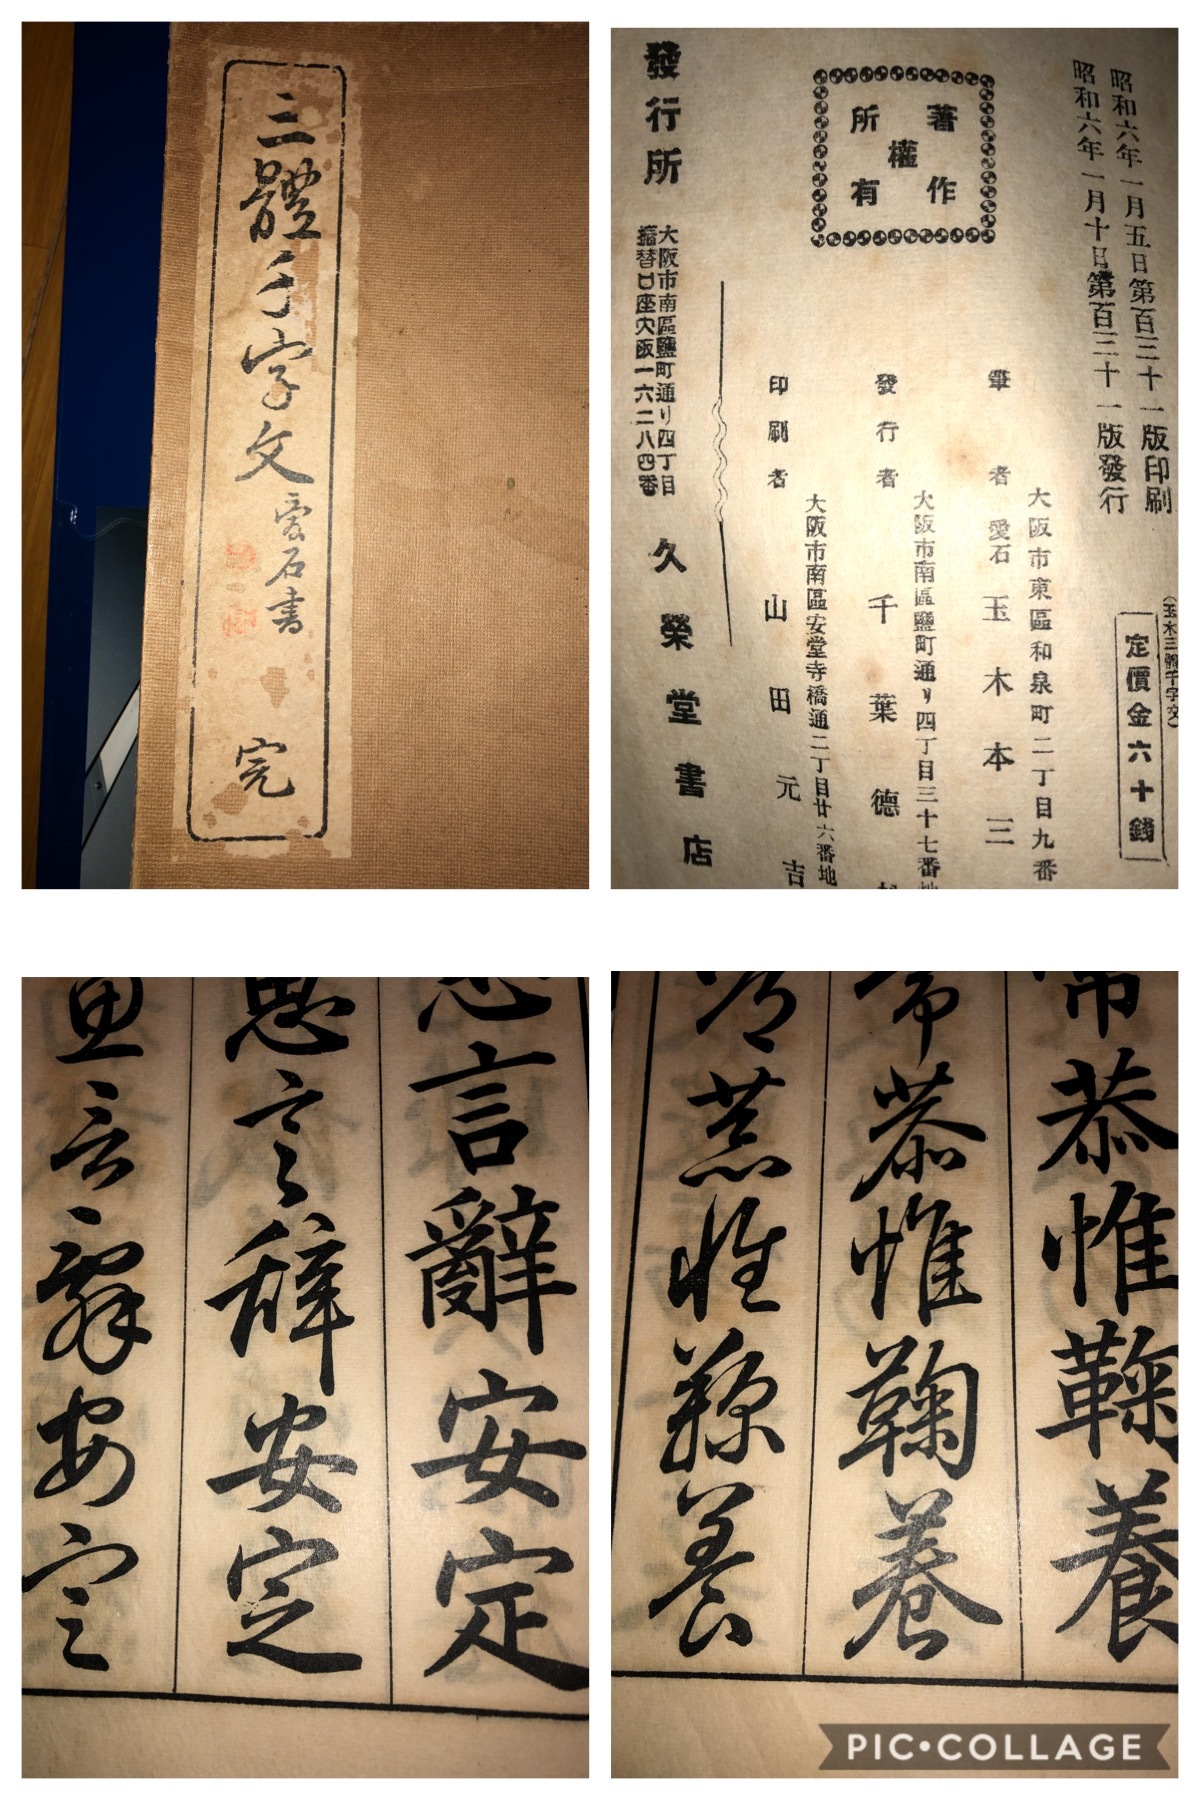 三體千字文
愛石書
完
昭和六年一月五日第百三十一版印刷
昭和六年一月十日第百三十一版發行
(玉木三體千字文)
定價金六十錢
著作權所有
大阪市東區和泉町二丁目九番
筆者愛石玉木本三
大阪市南區鹽町通り四丁目三十七番地
發行者千葉德
大阪市南區安堂寺橋通二丁目廿六番地
印刷者山田元吉
發行所
大阪市南區鹽町通り四丁目
振替口座大阪一六二八四番
久榮堂書店
言辭安定
思言辭安定
思言辭安定
恭惟鞠養
恭惟鞠養
恭惟鞠養
PIC•COLLAGE